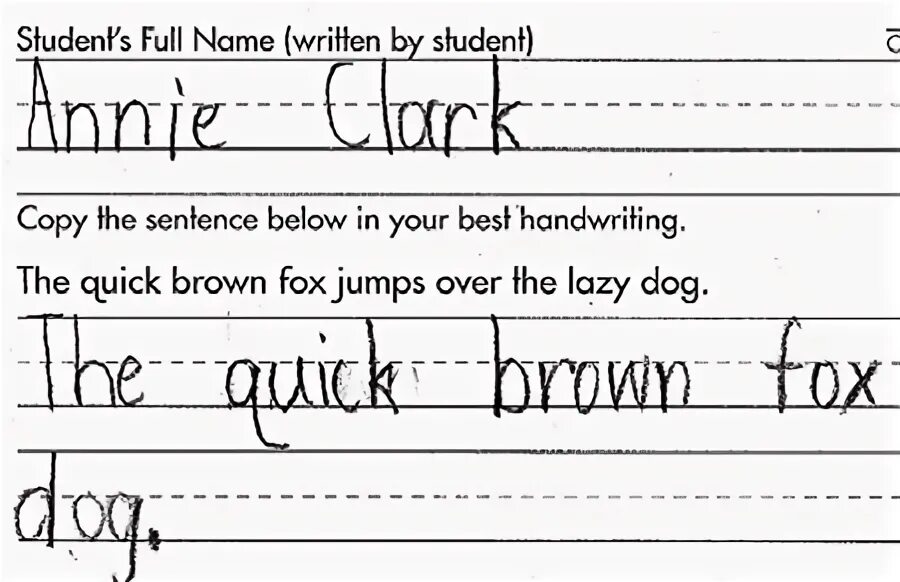 Student's Full Name (written by student)
Annie Clark
Copy the sentence below in your best handwriting.
The quick brown fox jumps over the lazy dog.
The quick brown fox
dog.